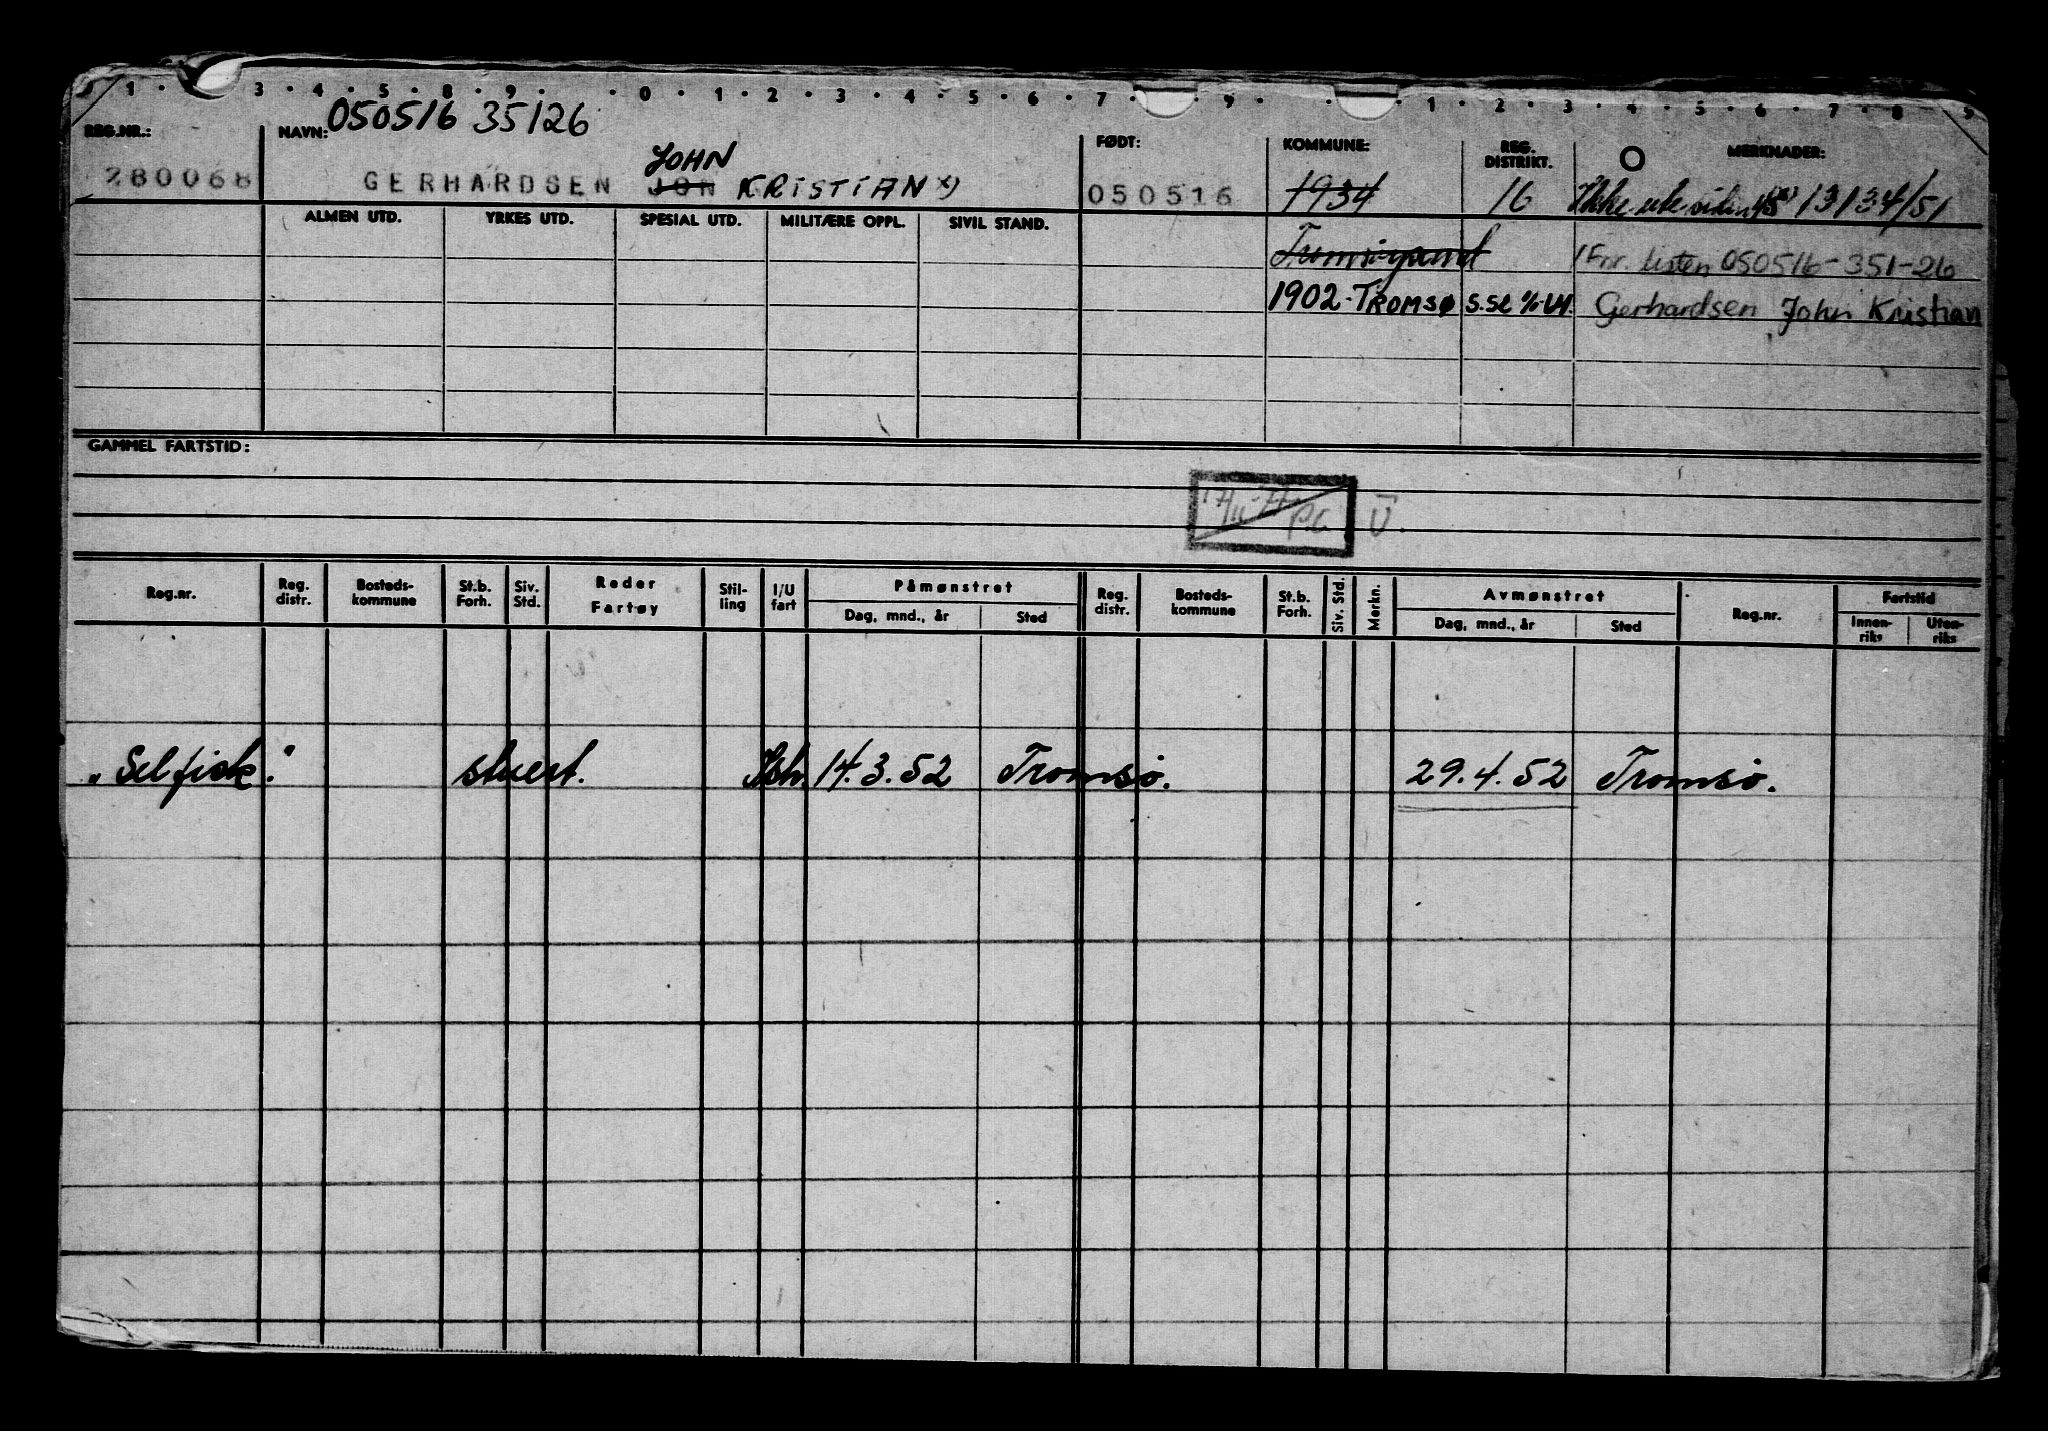 1 · 3 · 4 · 5 · 8 · 9 · · 0 · 1 · 2 · 3 · 4 · 5 · 6 · 7 · 9 · · 1 · 2 · 3 · 4 · 5 · 6 · 7 · 8 · 9
050516 35126
REG.NR.: NAVN: FØDT: KOMMUNE: REG. DISTRIKT. MERKNADER:
JOHN
280068 GERHARDSEN JON KRISTIAN x) 050516 1934 16 Ikke ute siden 13134/51
ALMEN UTD. YRKES UTD. SPESIAL UTD. MILITÆRE OPPL. SIVIL STAND.
Tromsøysund Fnr. listen 050516-351-26
1902-TROMSØ Gerhardsen John Kristian
GAMMEL FARTSTID:
PC U.
Reg.nr. Reg. distr. Bosteds-kommune St.b. Forh. Siv. Std. Reder Fartøy Stil-ling I/U fart Påmønstret Reg. distr. Bosteds-kommune St.b. Forh. Siv. Std. Merkn. Avmønstret Reg.nr. Fartstid
Dag, mnd., år Sted Dag, mnd., år Sted Innen-riks Uten-riks
"Selfisk." stuert. 14.3.52 Tromsø. 29.4.52 Tromsø.